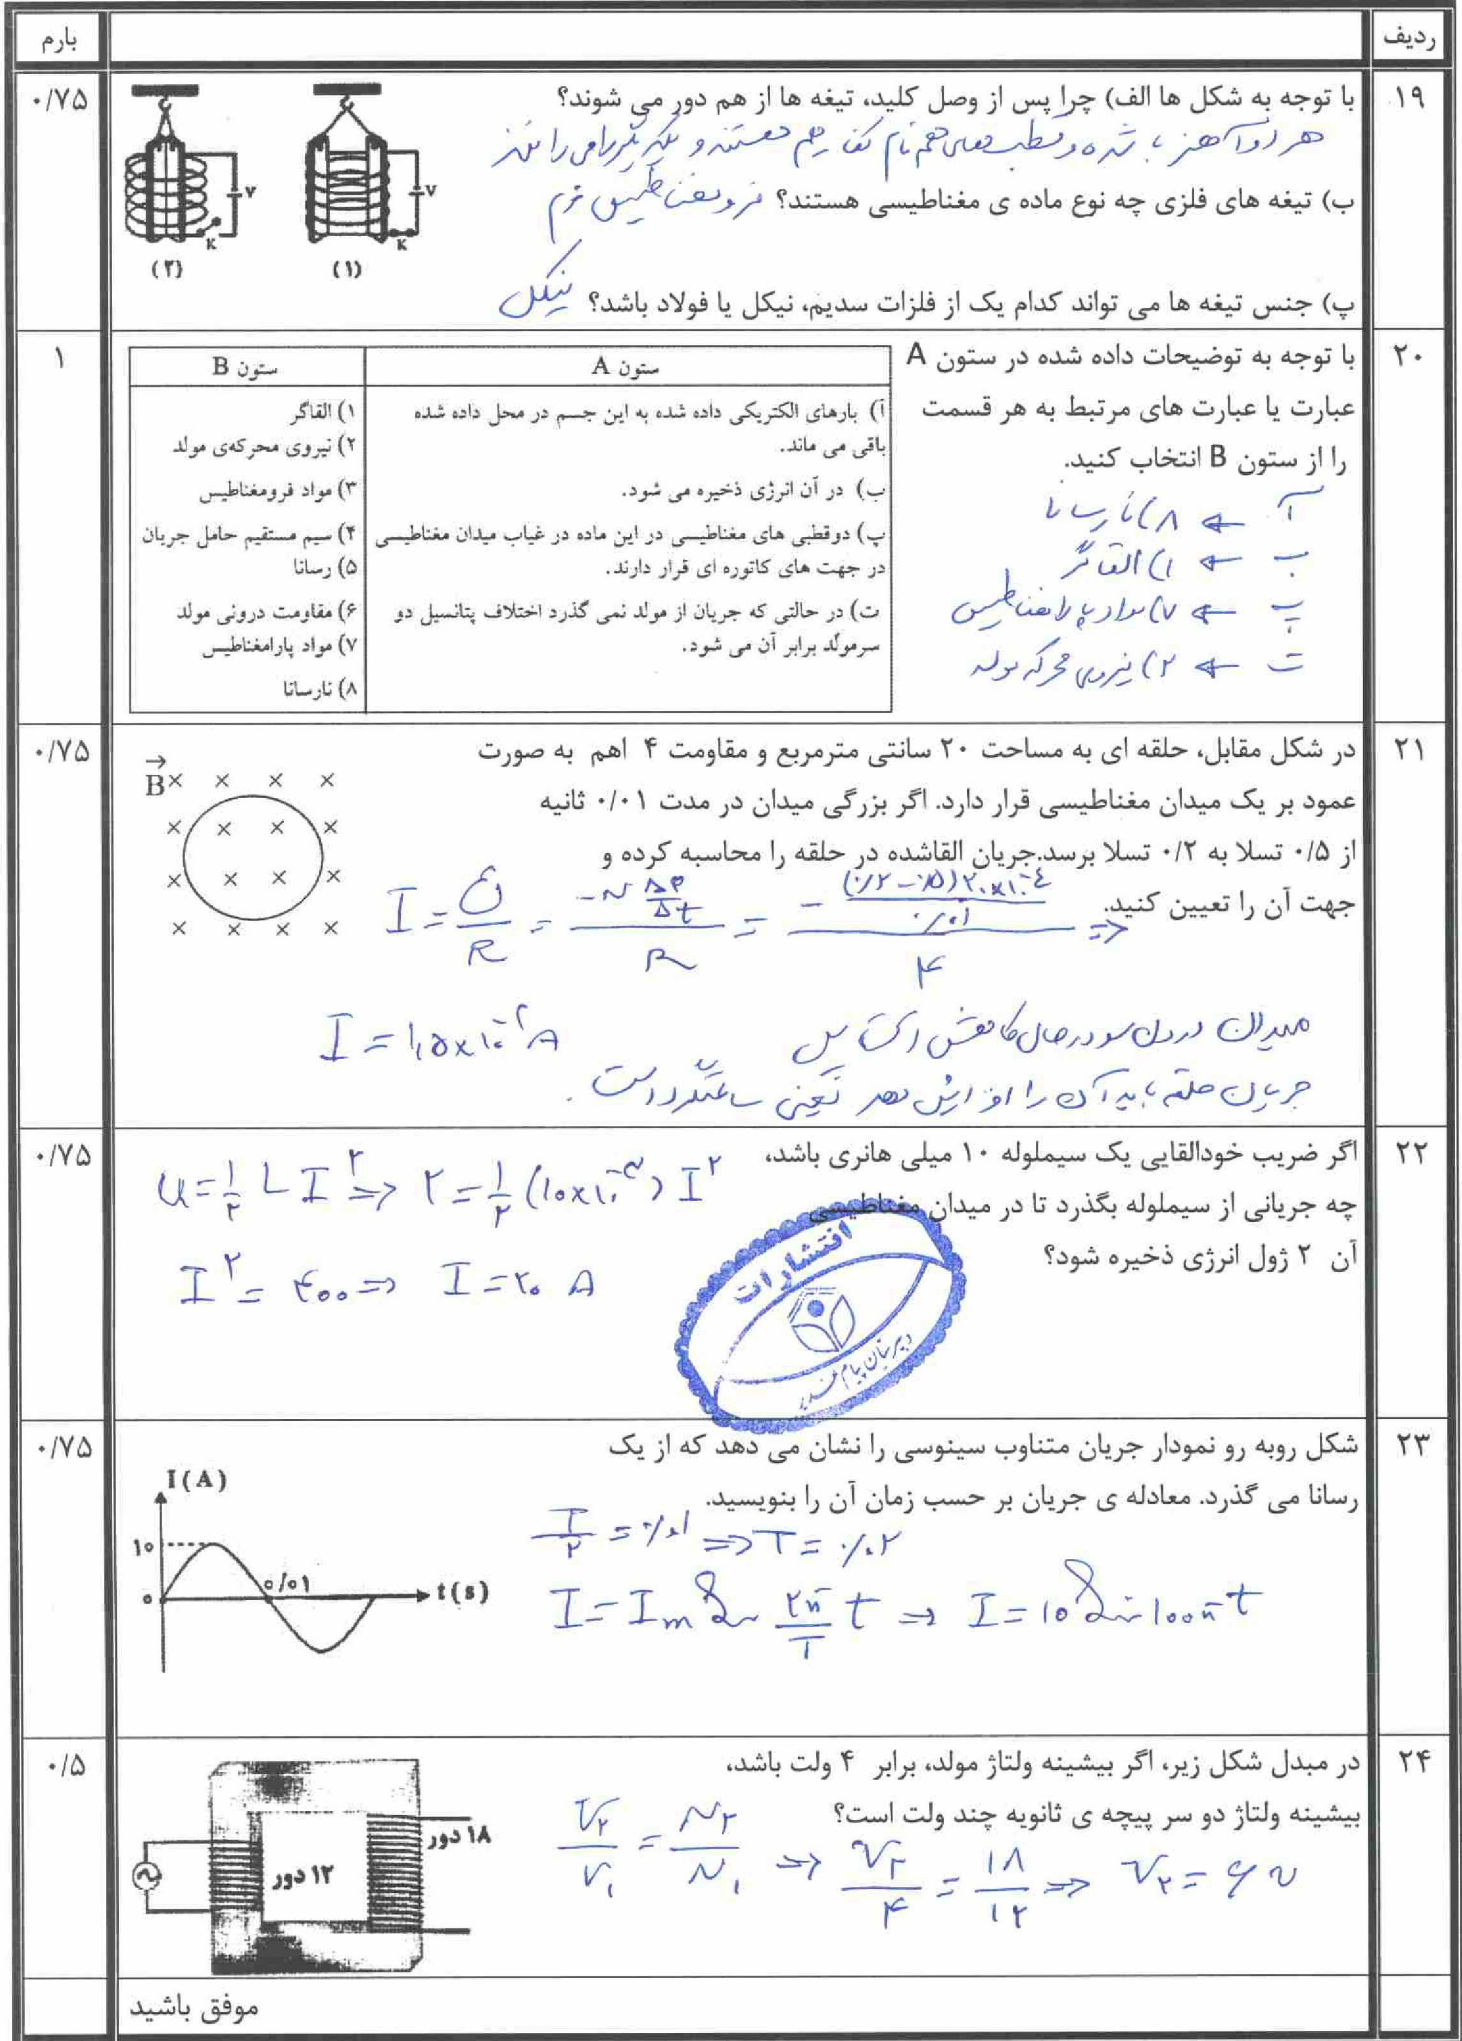 ردیف
بارم
۱۹
۰/۷۵
با توجه به شکل ها الف) چرا پس از وصل کلید، تیغه ها از هم دور می شوند؟
هر دو آهنربا شده و قطب های هم نام کنار هم هستند و یکدیگر را می رانند
ب) تیغه های فلزی چه نوع ماده ی مغناطیسی هستند؟ فرومغناطیس نرم
پ) جنس تیغه ها می تواند کدام یک از فلزات سدیم، نیکل یا فولاد باشد؟ نیکل
V
K
(۲)
V
K
(۱)
۲۰
۱
با توجه به توضیحات داده شده در ستون A
عبارت یا عبارت های مرتبط به هر قسمت
را از ستون B انتخاب کنید.
آ ← ۸) نارسانا
ب ← ۱) القاگر
پ ← ۷) مواد پارامغناطیس
ت ← ۲) نیروی محرکه مولد
ستون A
آ) بارهای الکتریکی داده شده به این جسم در محل داده شده
باقی می ماند.
ب) در آن انرژی ذخیره می شود.
پ) دوقطبی های مغناطیسی در این ماده در غیاب میدان مغناطیسی
در جهت های کاتوره ای قرار دارند.
ت) در حالتی که جریان از مولد نمی گذرد اختلاف پتانسیل دو
سرمولّد برابر آن می شود.
ستون B
۱) القاگر
۲) نیروی محرکه‌ی مولد
۳) مواد فرومغناطیس
۴) سیم مستقیم حامل جریان
۵) رسانا
۶) مقاومت درونی مولد
۷) مواد پارامغناطیس
۸) نارسانا
۲۱
۰/۷۵
در شکل مقابل، حلقه ای به مساحت ۲۰ سانتی مترمربع و مقاومت ۴ اهم به صورت
عمود بر یک میدان مغناطیسی قرار دارد. اگر بزرگی میدان در مدت ۰/۰۱ ثانیه
از ۰/۵ تسلا به ۰/۲ تسلا برسد.جریان القاشده در حلقه را محاسبه کرده و
جهت آن را تعیین کنید.
B
I = ε/R = (-N Δφ/Δt)/R = (-(۰/۲-۰/۵)۲۰×۱۰⁻⁴/۰/۰۱)/۴ ⇒
I = ۱,۵×۱۰⁻² A
میدان درون سو در حال کاهش است پس
جریان حلقه باید آن را افزایش دهد یعنی ساعتگرد است.
۲۲
۰/۷۵
اگر ضریب خودالقایی یک سیملوله ۱۰ میلی هانری باشد،
چه جریانی از سیملوله بگذرد تا در میدان مغناطیسی
آن ۲ ژول انرژی ذخیره شود؟
U = ۱/۲ L I² ⇒ ۲ = ۱/۲ (۱۰×۱۰⁻³) I²
I² = ۴۰۰ ⇒ I = ۲۰ A
انتشارات
۲۳
۰/۷۵
شکل روبه رو نمودار جریان متناوب سینوسی را نشان می دهد که از یک
رسانا می گذرد. معادله ی جریان بر حسب زمان آن را بنویسید.
T/۲ = ۰/۰۱ ⇒ T = ۰/۰۲
I = Im Sin ۲π/T t ⇒ I = ۱۰ Sin ۱۰۰π t
I(A)
۱۰
۰
۰/۰۱
t(s)
۲۴
۰/۵
در مبدل شکل زیر، اگر بیشینه ولتاژ مولد، برابر ۴ ولت باشد،
بیشینه ولتاژ دو سر پیچه ی ثانویه چند ولت است؟
V۲/V۱ = N۲/N۱ ⇒ V۲/۴ = ۱۸/۱۲ ⇒ V۲ = ۶ v
۱۸ دور
۱۲ دور
موفق باشید